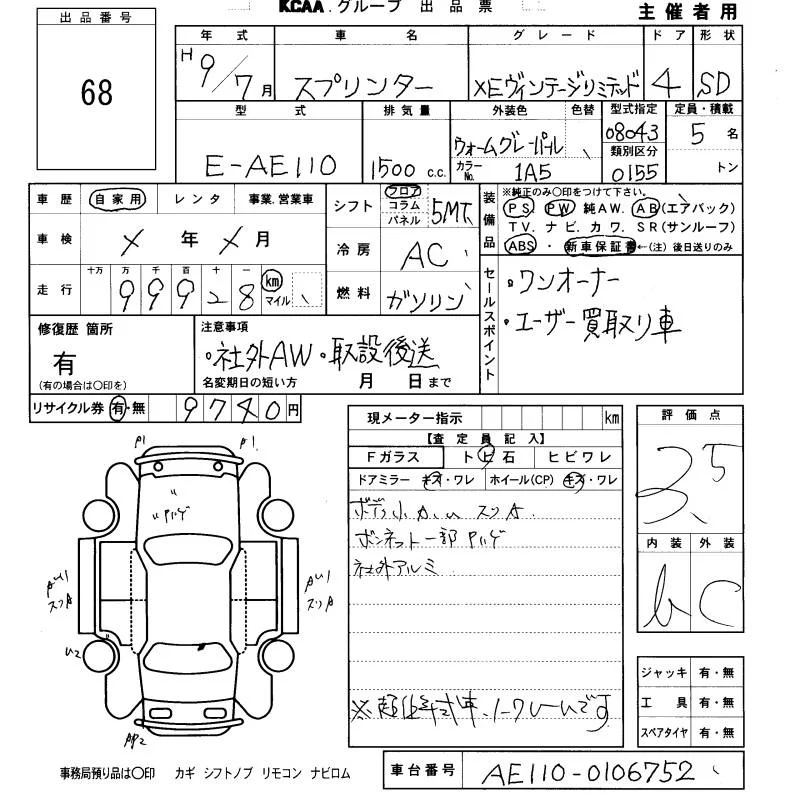 KCAA.グループ 出品票
主催者用
出品番号
68
年式 車名 グレード ドア 形状
H 9/7月 スプリンター XEヴィンテージリミテッド 4 SD
型式 排気量 外装色 色替 型式指定 定員・積載
E-AE110 1500 c.c. ウォームグレーパール 08043 5名
カラーNo. 1A5 類別区分 0155 トン
車歴 自家用 レンタ 事業.営業車
シフト フロア コラム パネル 5MT
装備品 ※純正のみ○印をつけて下さい。
PS. PW 純AW. AB(エアバック)
TV. ナビ. カワ. SR(サンルーフ)
ABS ・ 新車保証書 ←(注)後日送りのみ
車検 X年X月
冷房 AC
走行 十万 万 千 百 十 一 km マイル
99928
燃料 ガソリン
セールスポイント
・ワンオーナー
・ユーザー買取り車
修復歴 箇所
有
(有の場合は○印を)
注意事項
・社外AW・取説後送
名変期日の短い方 月 日まで
リサイクル券 有・無 9740円
現メーター指示 km
【査定員記入】
Fガラス トビ石 ヒビワレ
ドアミラー キズ・ワレ ホイール(CP) キズ・ワレ
ボデー小 スリA
ボンネット一部Pハゲ
社外アルミ
評価点
3.5
内装 外装
b C
P1 P1
Pハゲ
スリA スリA
U2
ジャッキ 有・無
工具 有・無
スペアタイヤ 有・無
事務局預り品は○印 カギ シフトノブ リモコン ナビロム
車台番号 AE110-0106752